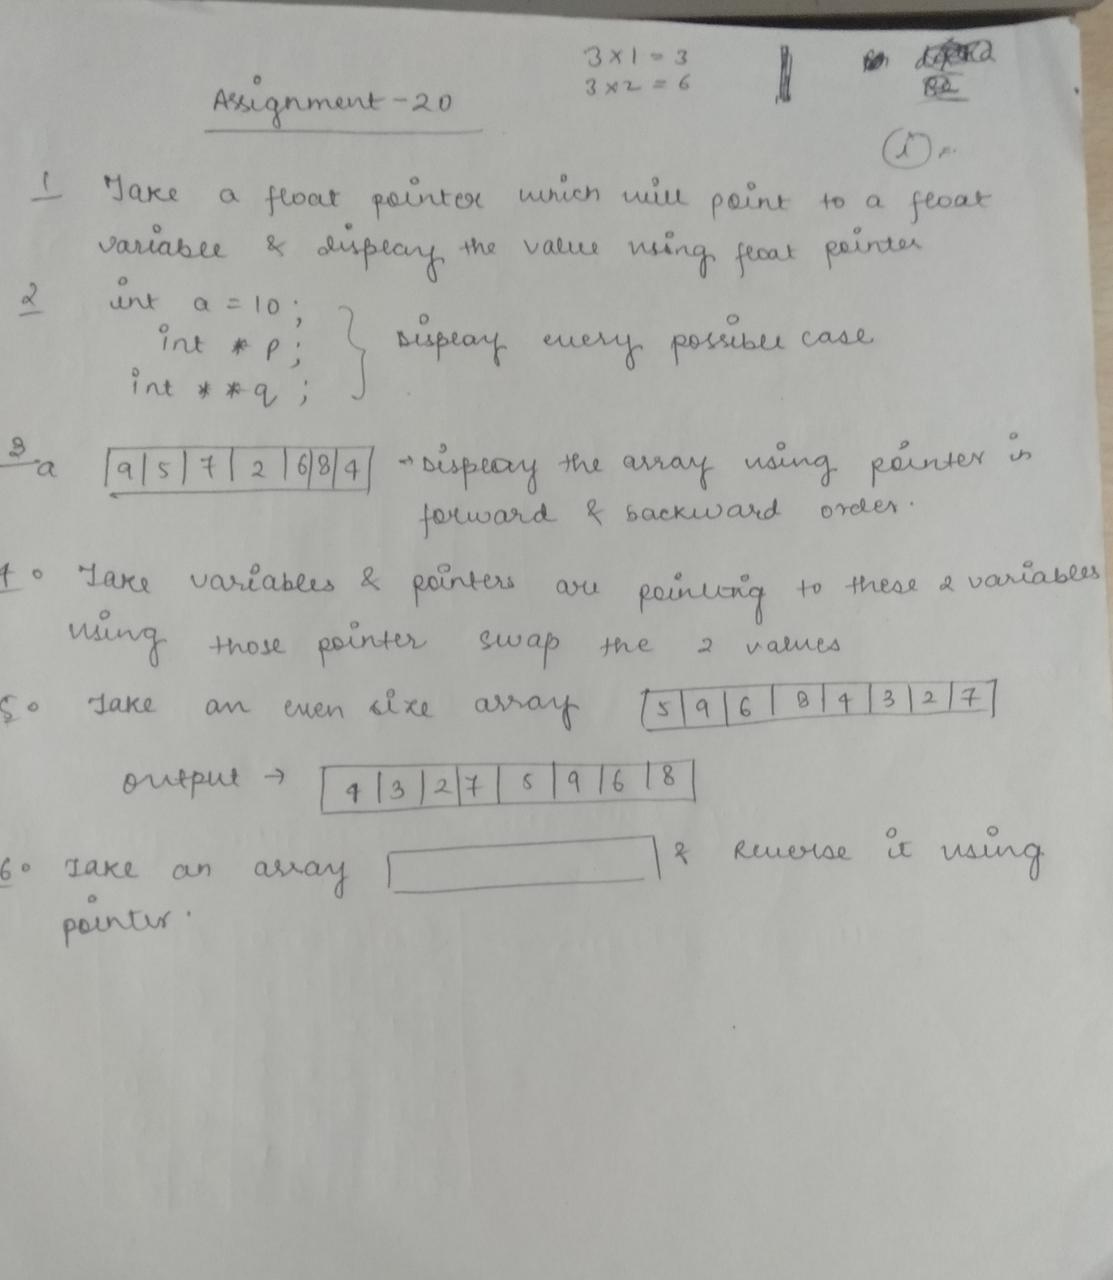 3 x 1 = 3
3 x 2 = 6
Assignment - 20
1 Take a float pointer which will point to a float
variable & display the value using float pointer
2 int a = 10 ;
int * p ;
int * * q ;
Display every possible case
3 a 9 5 7 2 6 8 4 → Display the array using pointer in
forward & backward order.
4. Take variables & pointers are pointing to these 2 variables
using those pointer swap the 2 values
5. Take an even size array 5 9 6 8 4 3 2 7
output → 4 3 2 7 5 9 6 8
6. Take an array & Reverse it using
pointer.